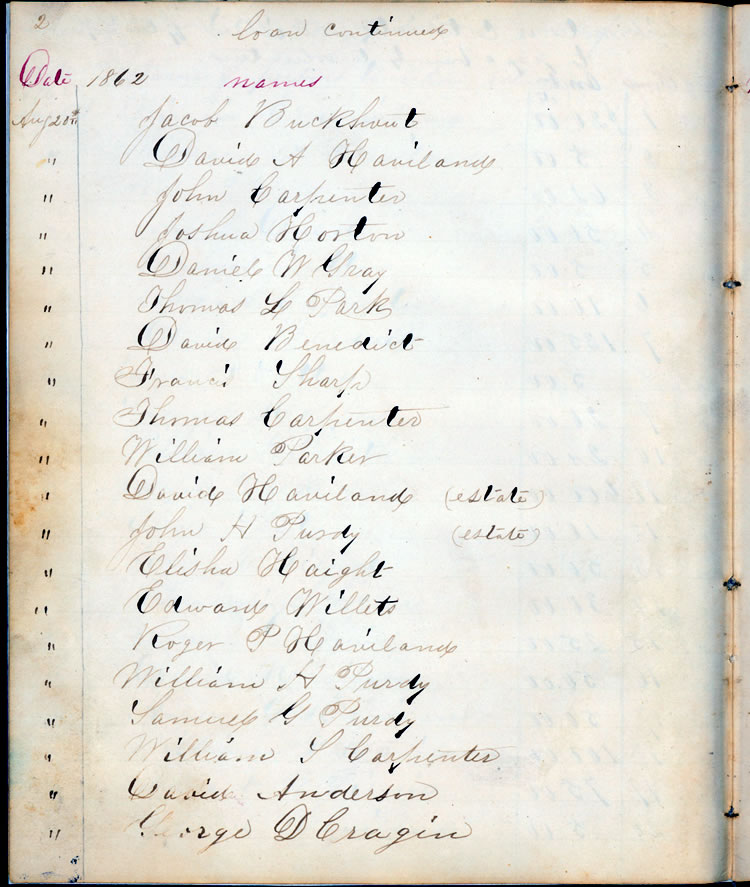 2 loan continued
Date 1862 names
Aug 20th Jacob Buckhout
" David A Haviland
" John Carpenter
" Joshua Horton
" Daniel W Gray
" Thomas L Park
" David Benedict
" Francis Sharp
" Thomas Carpenter
" William Parker
" David Haviland (estate)
" John H Purdy (estate)
" Elisha Haight
" Edward Willets
" Roger P Haviland
" William H Purdy
" Samuel G Purdy
" William S Carpenter
" David Anderson
" George D Cragin